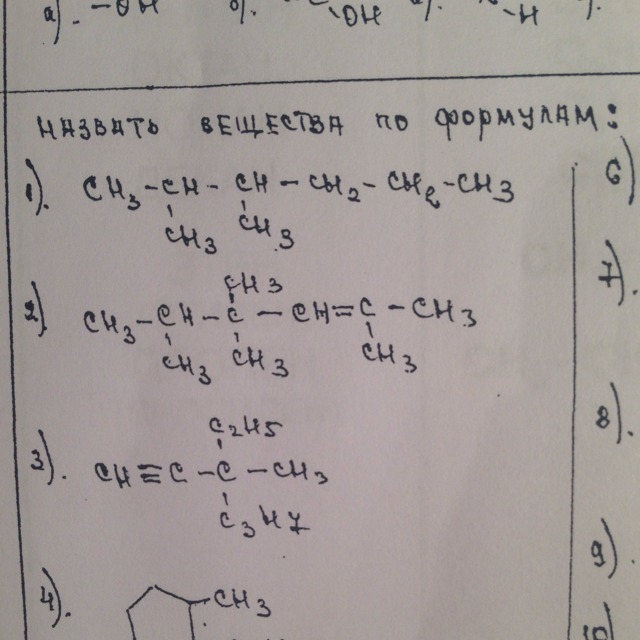 а). -OH б). OH -H
НАЗВАТЬ ВЕЩЕСТВА ПО ФОРМУЛАМ:
1). CH3-CH-CH-CH2-CH2-CH3
CH3 CH3
CH3
2) CH3-CH-C-CH=C-CH3
CH3 CH3 CH3
C2H5
3). CH≡C-C-CH3
C3H7
4). CH3
6)
7).
8).
9).
10)